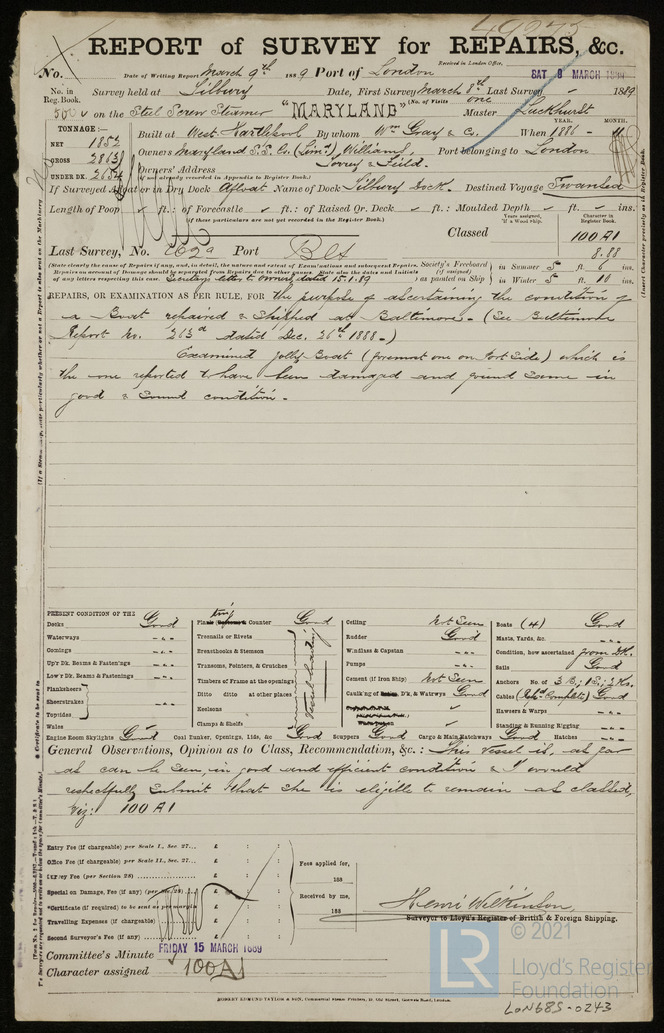 49275
REPORT of SURVEY for REPAIRS, &c.
Received in London Office,
No. Date of Writing Report March 9th 1889 Port of London SAT 9 MARCH 1889
No. in Reg. Book. Survey held at Tilbury Date, First Survey March 8th Last Survey 1889
(No. of Visits one
on the Steel Screw Steamer "MARYLAND" Master Luckhurst
TONNAGE:— YEAR. MONTH.
NET 1852 Built at West Hartlepool By whom Wm Gray & Co. When 1886 - 11
GROSS 2863 Owners Maryland S.S. Co. (Limd) Williams, Port belonging to London
UNDER DK. 2654 Owners' Address Torrey & Feild.
(if not already recorded in Appendix to Register Book.)
If Surveyed Afloat or in Dry Dock Afloat Name of Dock Tilbury Dock. Destined Voyage Swansea
Length of Poop ft.: of Forecastle ft.: of Raised Qr. Deck ft.: Moulded Depth ft. ins.
(if these particulars are not yet recorded in the Register Book.)
Years assigned, if a Wood ship. Character in Register Book.
Classed 100 A1
8.88
Last Survey, No. 262a Port Blt
(State clearly the cause of Repairs if any, and, in detail, the nature and extent of Examinations and subsequent Repairs.
Repairs on account of Damage should be separated from Repairs due to other causes. State also the dates and Initials
of any letters respecting this case. Secretary's letter to owners dated 15.1.89
Society's Freeboard (if assigned) as painted on Ship in Summer 5 ft. 6 ins.
in Winter 5 ft. 10 ins.
REPAIRS, OR EXAMINATION AS PER RULE, FOR the purpose of ascertaining the condition of
a Boat repaired & shipped at Baltimore. - (See Baltimore
Report No. 263a dated Dec. 26th 1888 -)
Examined jolly Boat (foremost one on Port Side) which is
the one reported to have been damaged and found same in
good & sound condition. -
PRESENT CONDITION OF THE
Decks Good
Waterways - „ -
Comings - „ -
Up'r Dk. Beams & Fastenings - „ -
Low'r Dk. Beams & Fastenings - „ -
Planksheers
Sheerstrakes
Topsides
Wales
Engine Room Skylights Good
Plating Counter Good
Treenails or Rivets
Breasthooks & Stemson
Transoms, Pointers, & Crutches
Timbers of Frame at the openings
Ditto ditto at other places
Keelsons
Clamps & Shelfs
Coal Bunker, Openings, Lids, &c Good
Scuppers Good
Ceiling Not Seen
Rudder Good
Windlass & Capstan - „ -
Pumps - „ -
Cement (if Iron Ship) Not Seen
Caulking of Dk. & Watrwys Good
Cargo & Main Hatchways Good
Boats (4) Good
Masts, Yards, &c. - „ -
Condition, how ascertained from Dk.
Sails Good
Anchors No. of 3 B.; 1 S.; 2 Ks.
Cables (Repd Complete) Good
Hawsers & Warps - „ -
Standing & Running Rigging - „ -
Hatches - „ -
General Observations, Opinion as to Class, Recommendation, &c.: This Vessel is, as far
as can be seen, in good and efficient condition & I would
respectfully submit that she is eligible to remain as classed,
Viz: 100 A1
Entry Fee (if chargeable) per Scale I., Sec. 27... £
Office Fee (if chargeable) per Scale II., Sec. 27... £
Survey Fee (per Section 28) £
Special or Damage, Fee (if any) (per Sec. 28) £
*Certificate (if required) to be sent as per margin
Travelling Expenses (if chargeable) £
Second Surveyor's Fee (if any) £
Fees applied for, 188
Received by me, 188
Henri Wilkinson
Surveyor to Lloyd's Register of British & Foreign Shipping.
Committee's Minute FRIDAY 15 MARCH 1889
Character assigned 100 A1
ROBERT EDMUND TAYLOR & SON, Commercial Steam Printers, 19, Old Street, Goswell Road, London.
LR
© 2021
Lloyd's Register
Foundation
LON685-0243